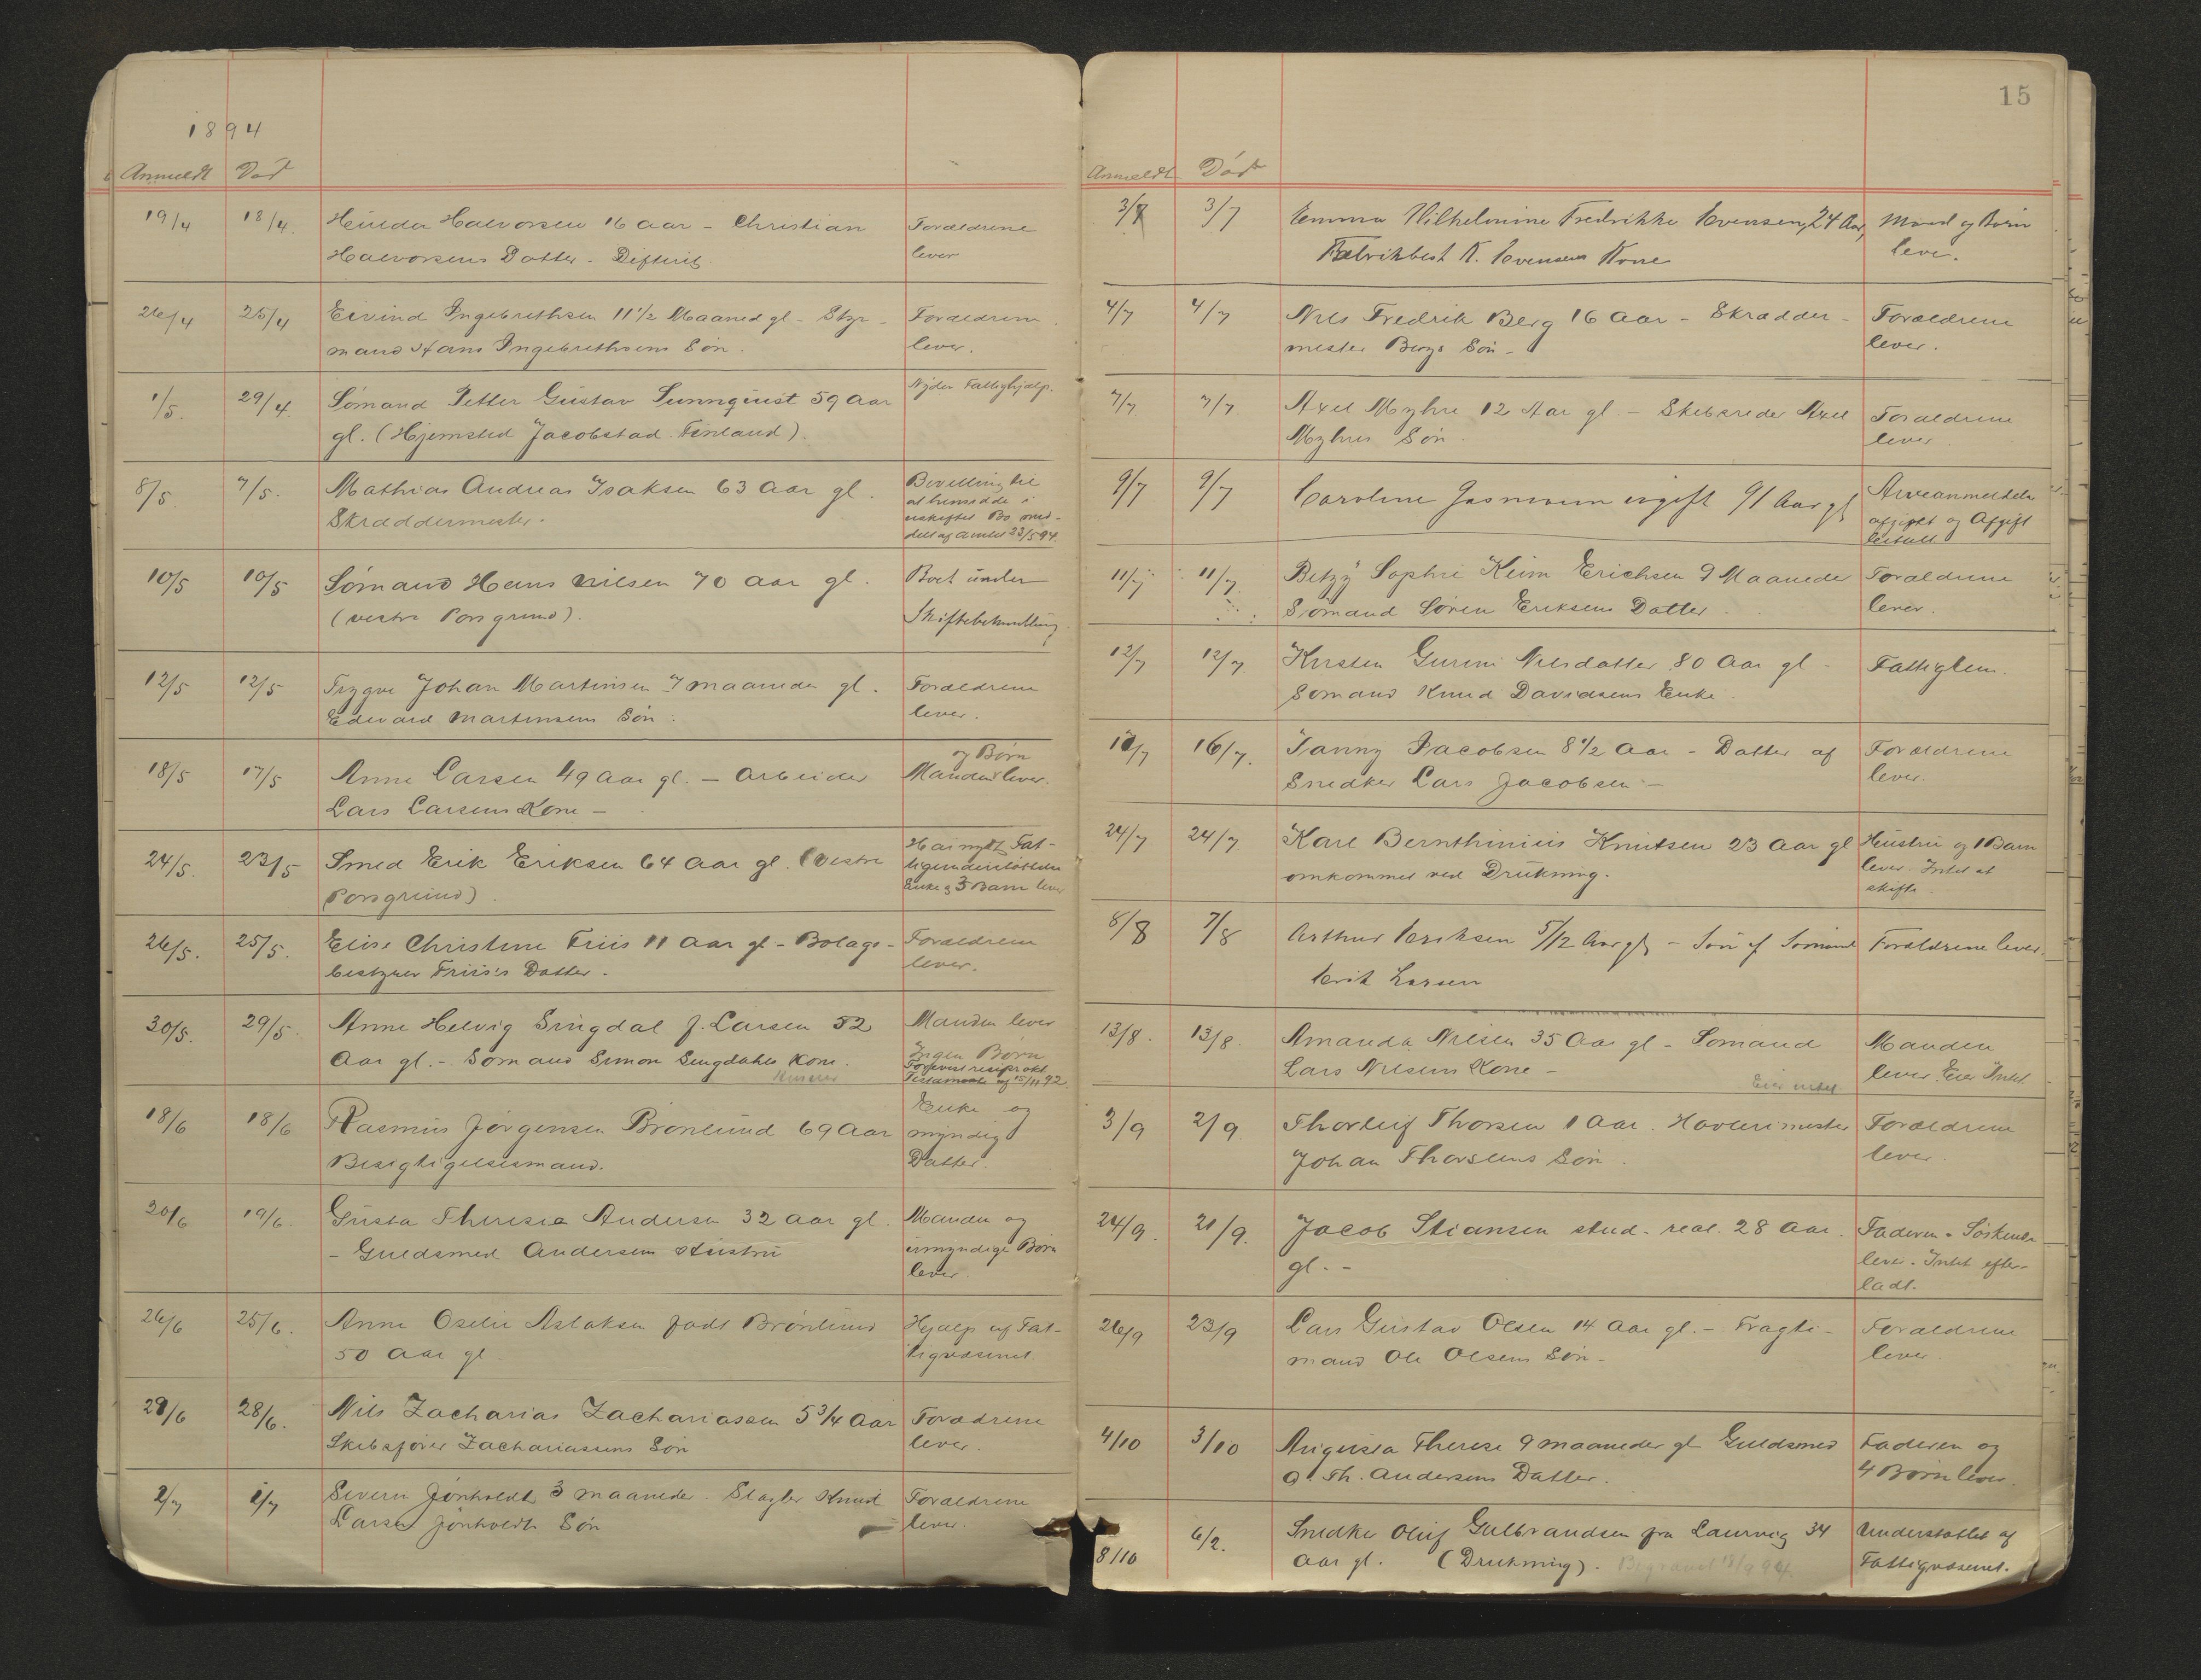 1894
Anmeldt Død
19/4 18/4. Hulda Halvorsen 16 aar - Christian Forældrene
Halvorsens Datter - Difterit lever
26/4 25/4 Eivind Ingebrethsen 11 1/2 Maaned gl - Styr- Forældrene
mand Hans Ingebrethsens Søn. lever.
1/5. 29/4. Sømand Petter Gustav Sunnquist 59 aar Nyder Fattighjælp.
gl. (Hjemsted Jacobstad Finland).
8/5 7/5. Mathias Andreas Isaksen 63 aar gl. Bevilling til
Skræddermester. at hensidde i
uskiftet Bo med-
delt af Amtet 23/5 94.
10/5 10/5 Sømand Hans Nilsen 70 aar gl. Boet under
(vestre Porsgrund). Skiftebehandling.
12/5 12/5 Trygve Johan Martinsen 7 maaneder gl. Forældrene
Edevard Martinsens Søn. lever.
og Børn
18/5 17/5 Anne Larsen 49 aar gl. - Arbeider Manden lever.
Lars Larsens Kone -
24/5. 23/5 Smed Erik Eriksen 64 aar gl. (Vestre Har nydt Fat-
Porsgrund) tigunderstøttelse
Enke og 3 Barn lever
26/5. 25/5. Elise Christine Friis 11 aar gl - Bolags- Forældrene
bestyrer Friis's Datter. lever.
30/5. 29/5. Anne Helvig Singdal f. Larsen 52 Manden lever
Aar gl. - Sømand Simon Singdahls Kone. Ingen Børn
Testament af 15/11 92.
18/6 18/6 Rasmus Jørgensen Brønlund 69 aar Enke og
Besigtigelsesmand. myndig
Datter.
20/6 19/6 Gusta Theresia Andersen 32 aar gl. Manden og
- Guldsmed Andersens Hustru umyndige Børn
lever.
26/6 25/6. Anne Oselie Aslaksen født Brønlund Hjælp af Fat-
50 aar gl tigvæsenet.
29/6 28/6. Nils Zacharias Zachariassen 5 3/4 Aar Forædrene
Skibsfører Zachariassens Søn lever.
2/7 1/7 Severin Jønholdt 3 maaneder. Slagter Knud Forældrene
Larsen Jønholdts Søn lever.
15
Anmeldt Død
3/7 3/7 Emma Vilhelmine Fredrikke Evensen, 24 Aar, Mand og Børn
Fabrikbest K. Evensens Kone lever.
4/7 4/7 Nils Fredrik Berg 16 aar - Skrædder- Forældrene
mester Bergs Søn - lever.
7/7 7/7. Axel Myhre 12 Aar gl. - Skibsreder Axel Forældrene
Myhres Søn. lever
9/7 9/7 Caroline ugift 91 Aar gl Arveanmeldelse
og Afgift
betalt
11/7 11/7. Betzy Sophie Keim Erichsen 9 Maaneder Forældrene
Sømand Søren Eriksens Datter lever.
12/7 12/7. Kirsten Gurine Nilsdatter 80 Aar gl - Fattiglem.
Sømand Knud Davidsens Enke
16/7. Fanny Jacobsen 8 1/2 aar - Datter af Forældrene
Snedker Lars Jacobsen - lever.
24/7 24/7. Karl Bernthinius Knutsen 23 aar gl Hustru og 1 Barn
omkommet ved Drukning. lever. Intet at
skifte.
8/8 7/8 Arthur Eriksen 5/12 Aar gl - Søn af Sømand Forældrene lever.
Erik Larsen
13/8. 13/8. Amanda Nilsen 35 Aar gl - Sømand Manden
Lars Nilsens Kone - Eier intet lever. Eier Intet
3/9 2/9 Thorleif Thorsen 1 Aar. Høvlerimester Forældrene
Johan Thorsens Søn. lever.
24/9. 21/9. Jacob Stiansen stud. real. 28 aar. Faderen - Søskende
gl. - lever. Intet efter-
ladt.
26/9 23/9 Lars Gustav Olsen 14 aar gl. - Fragte- Forældrene
mand Ole Olsens Søn - lever.
4/10 3/10 Augusta Therese 9 maaneder gl Guldsmed Faderen og
O. Th. Andersens Datter. 4 Børn lever.
6/2. Snedker Oluf Gulbrandsen fra Laurvig 34 Understøttet af
8/10 Aar gl. (Drukning). Begravet 18/9 94. Fattigvæsenet.